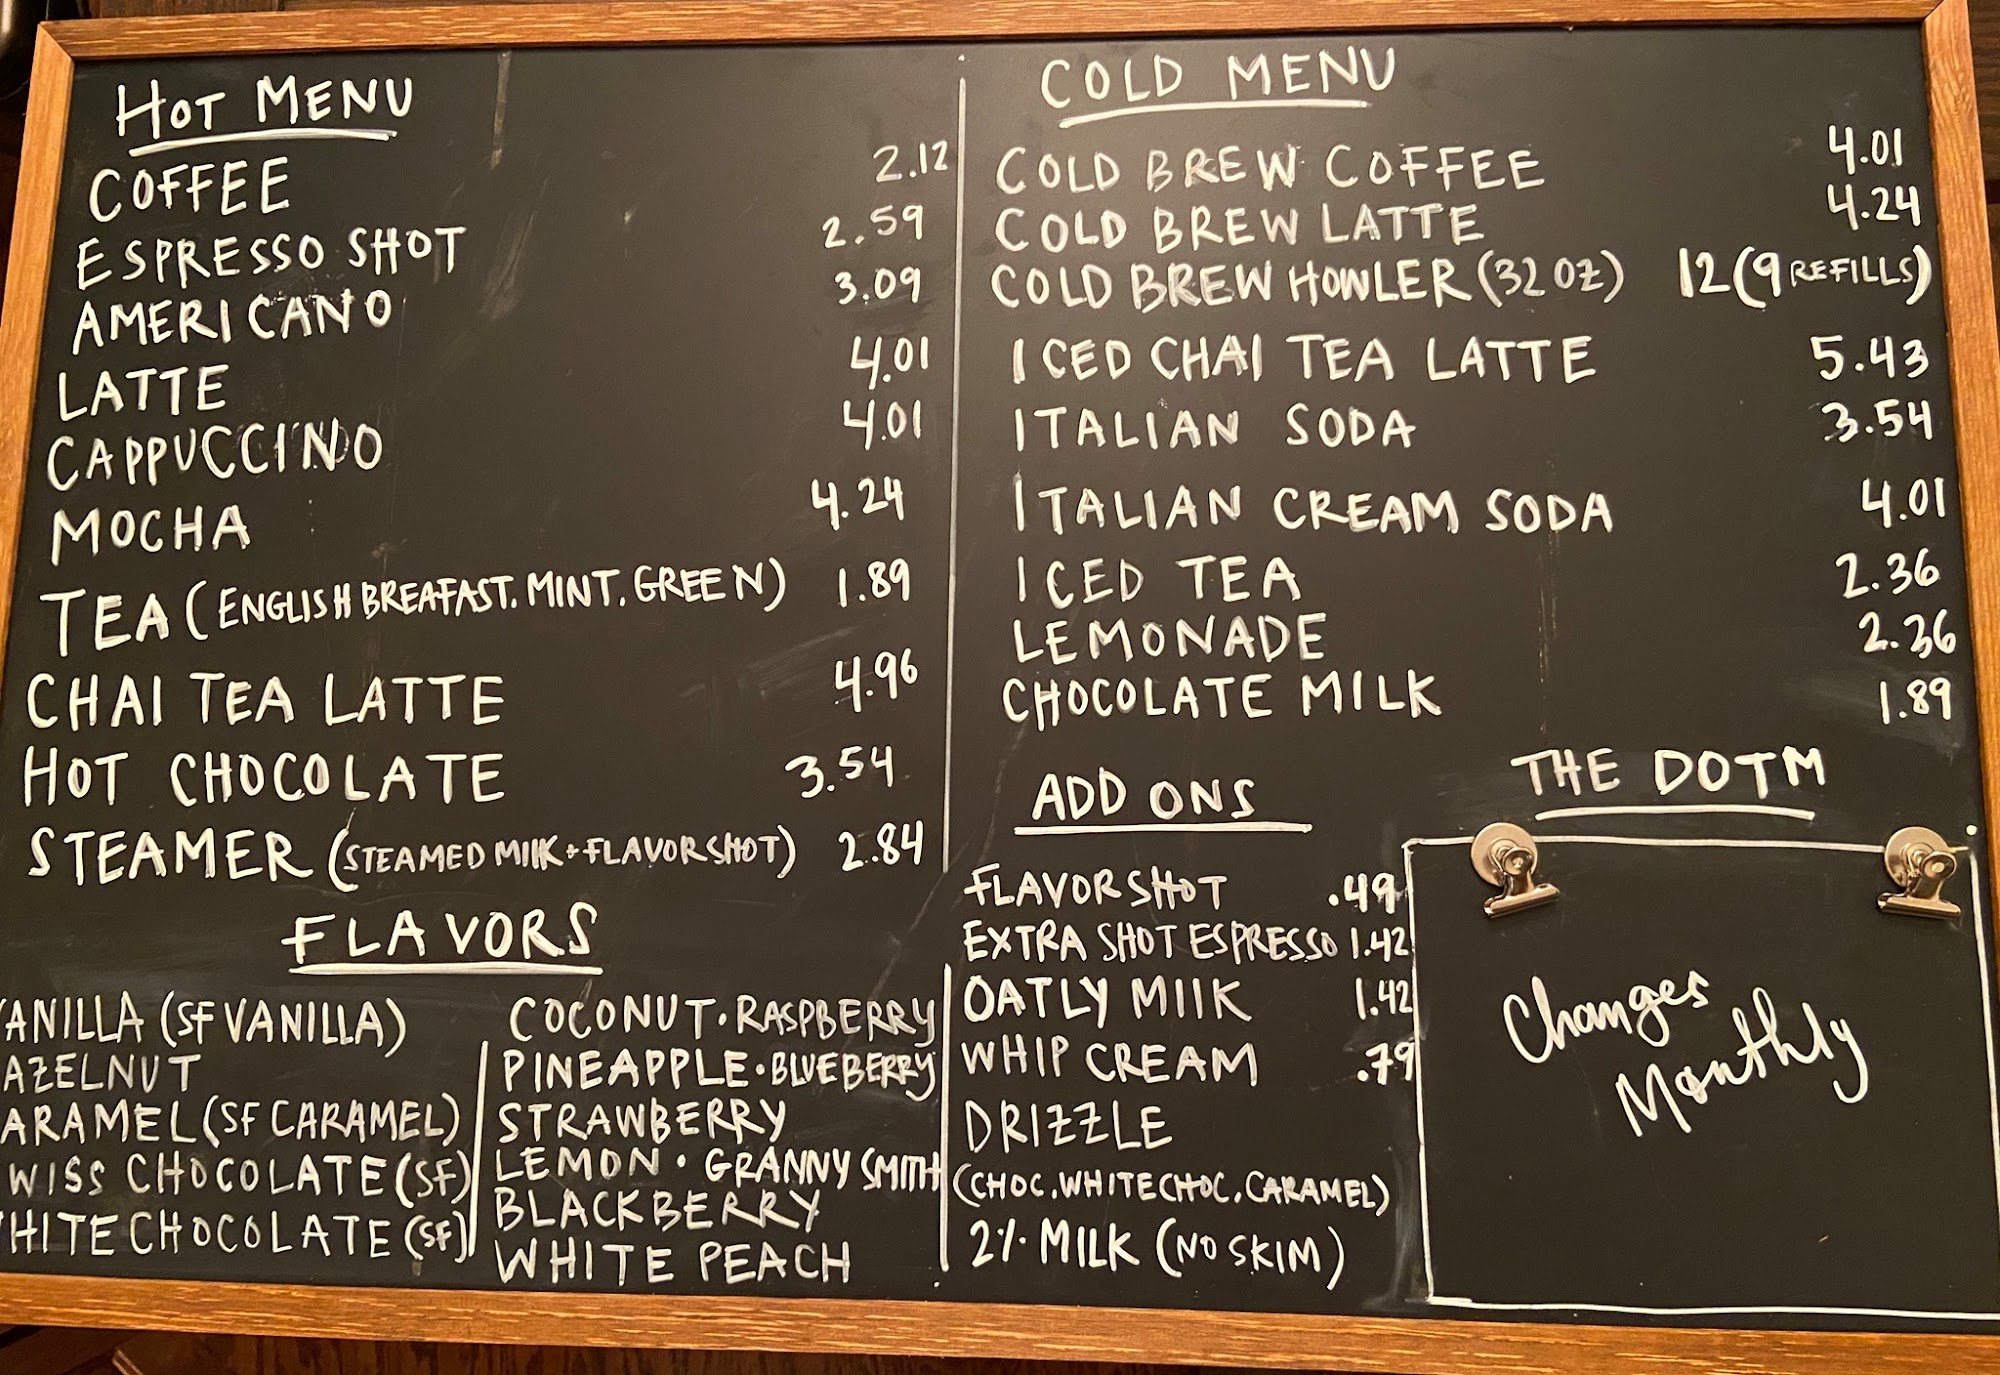 HOT MENU
COFFEE 2.12
ESPRESSO SHOT 2.59
AMERICANO 3.09
LATTE 4.01
CAPPUCCINO 4.01
MOCHA 4.24
TEA (ENGLISH BREAFAST, MINT, GREEN) 1.89
CHAI TEA LATTE 4.96
HOT CHOCOLATE 3.54
STEAMER (STEAMED MILK + FLAVOR SHOT) 2.84
FLAVORS
VANILLA (SF VANILLA)
AZELNUT
ARAMEL (SF CARAMEL)
WISS CHOCOLATE (SF)
WHITE CHOCOLATE (SF)
COCONUT • RASPBERRY
PINEAPPLE • BLUEBERRY
STRAWBERRY
LEMON • GRANNY SMITH
BLACKBERRY
WHITE PEACH
COLD MENU
COLD BREW COFFEE 4.01
COLD BREW LATTE 4.24
COLD BREW HOWLER (32 OZ) 12 (9 REFILLS)
ICED CHAI TEA LATTE 5.43
ITALIAN SODA 3.54
ITALIAN CREAM SODA 4.01
ICED TEA 2.36
LEMONADE 2.36
CHOCOLATE MILK 1.89
ADD ONS
FLAVOR SHOT .49
EXTRA SHOT ESPRESSO 1.42
OATLY MILK 1.42
WHIP CREAM .79
DRIZZLE
(CHOC, WHITE CHOC, CARAMEL)
2% MILK (NO SKIM)
THE DOTM
Changes
Monthly